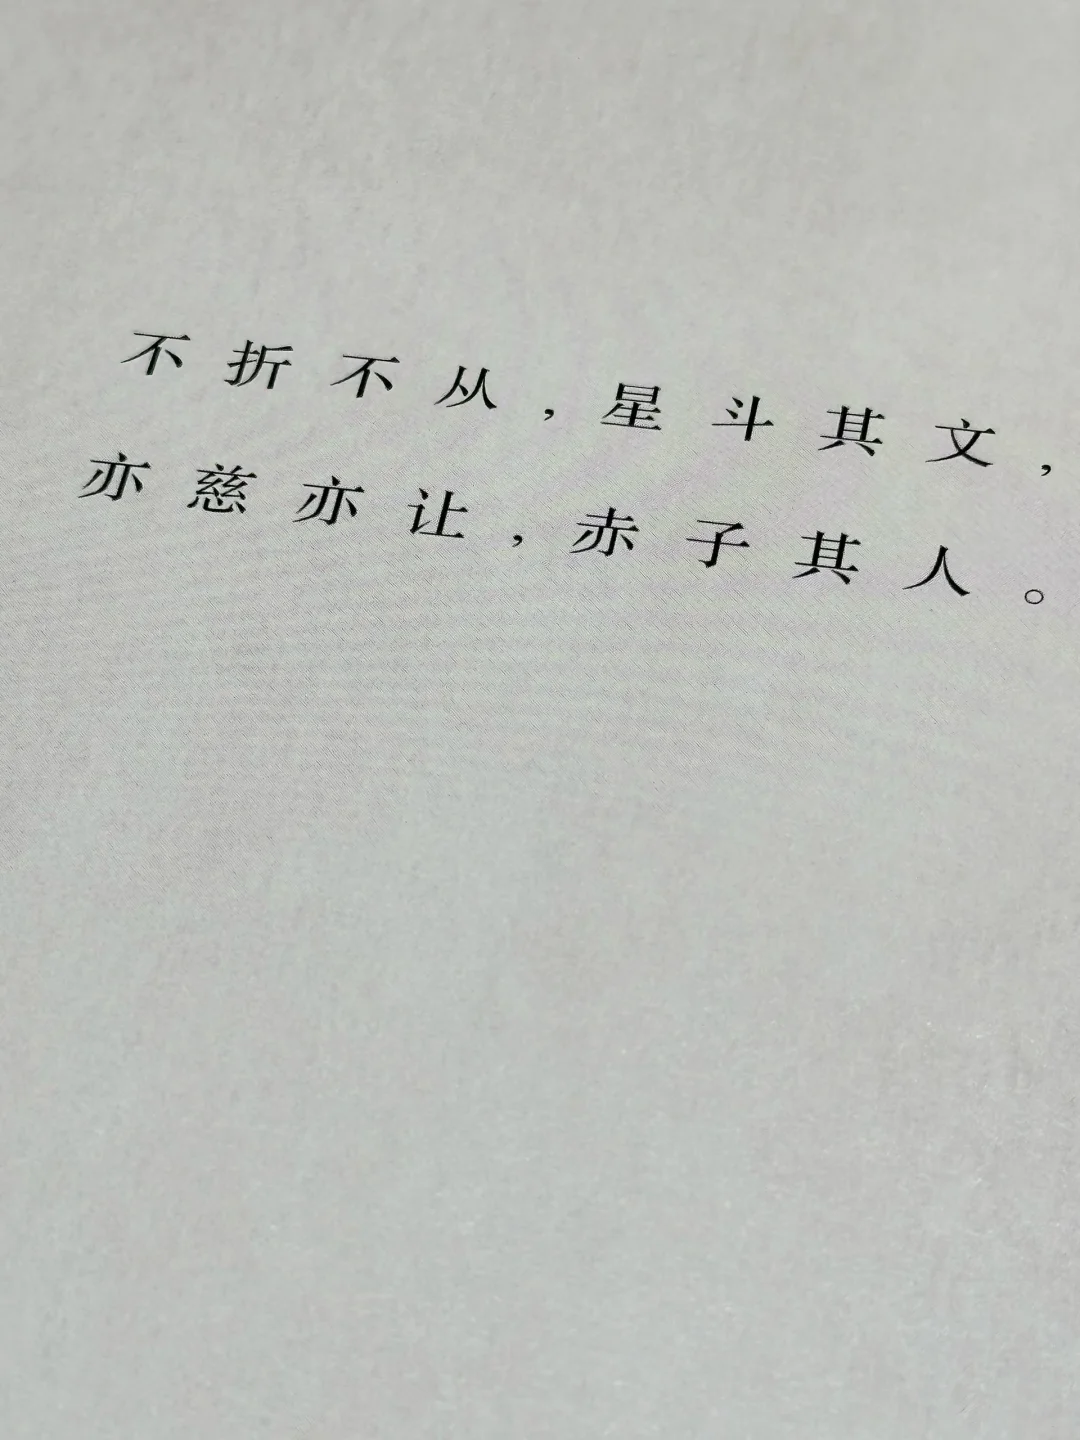 不折不从，星斗其文，
亦慈亦让，赤子其人。